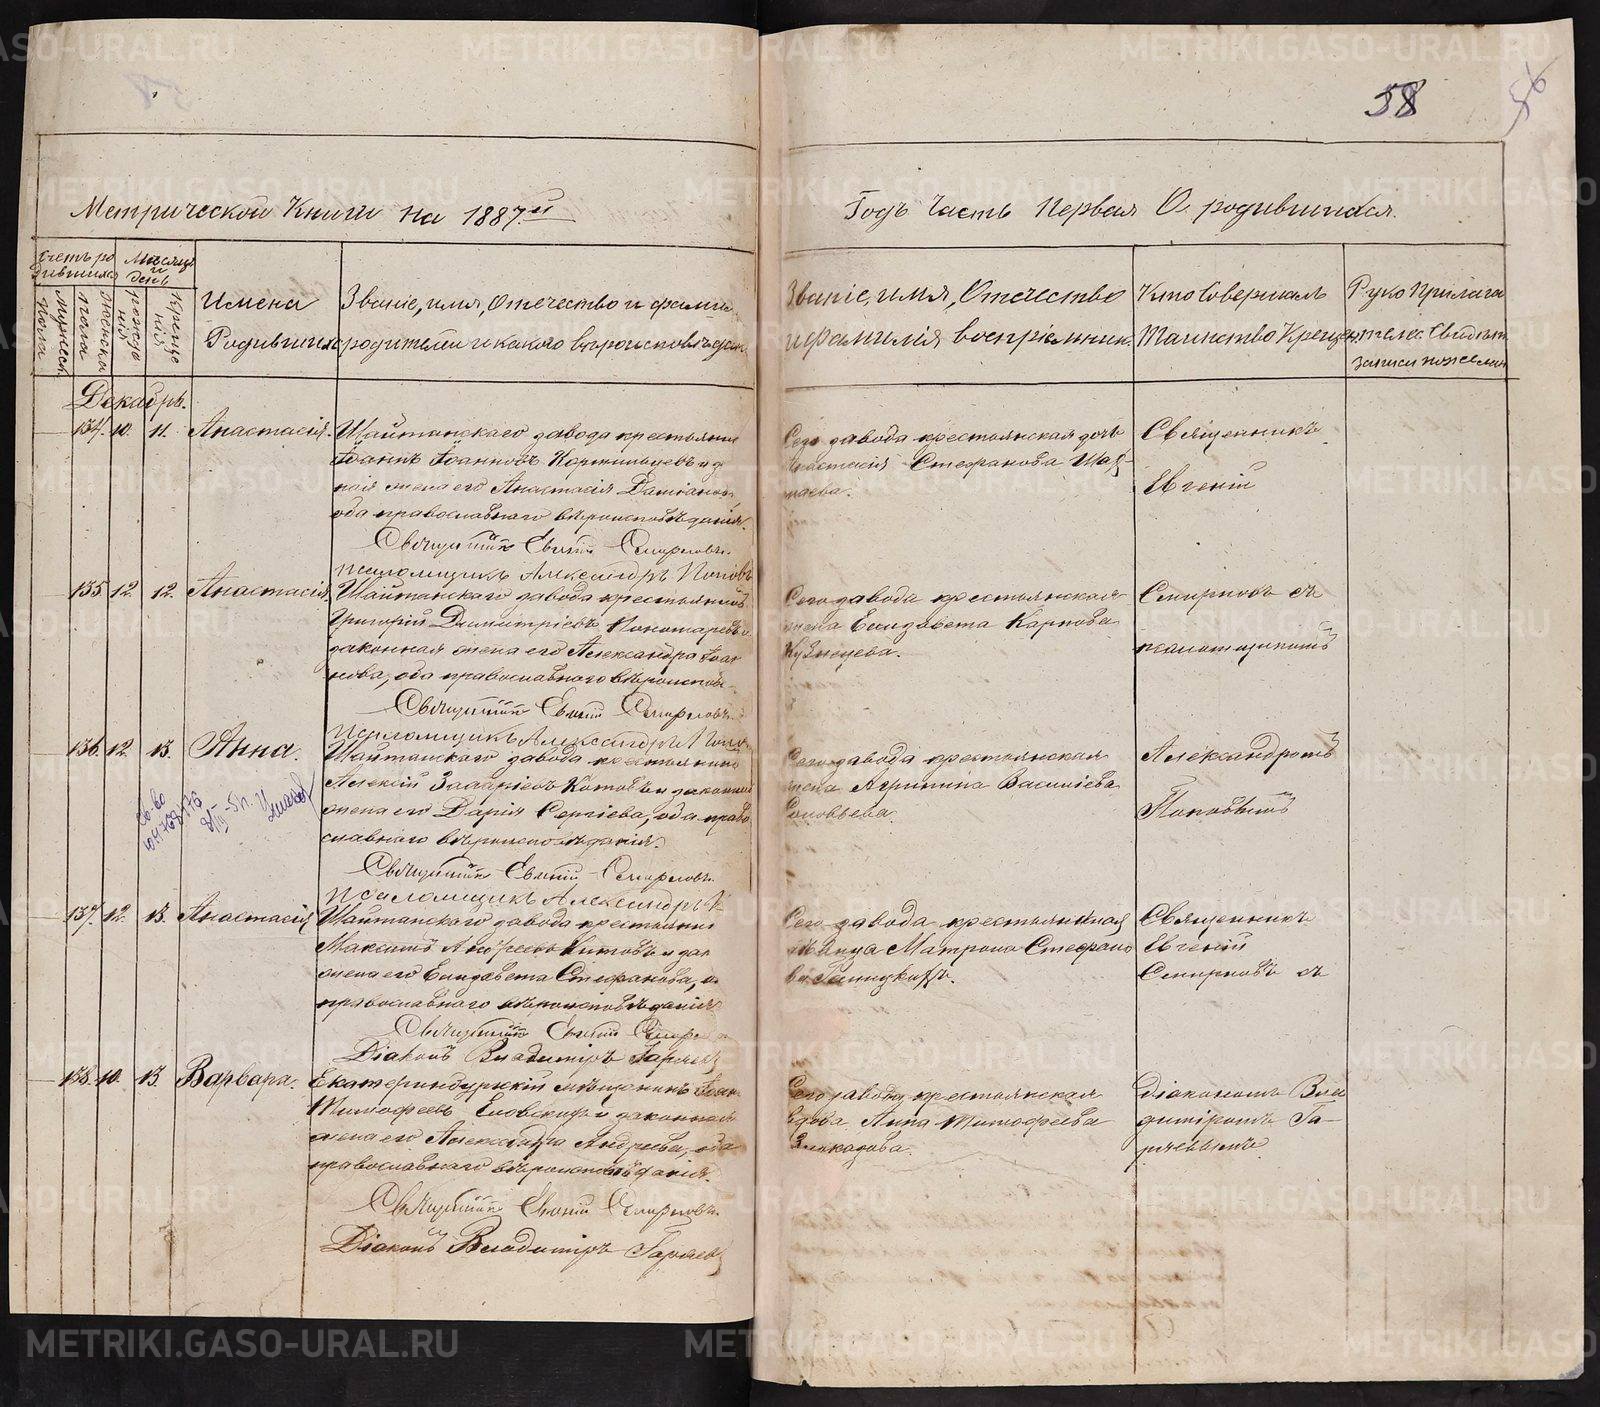 58
56
Метрической Книги на 1887й
Годъ Часть Первая О родившихся.
Счетъ родившихся
Мѣсяцъ и день
Мужеска пола
Женска пола
рожденія
Крещенія
Имена
Родившихся
Званіе, имя, Отечество и фамилія
родителей и какого вѣроисповѣданія
Званіе, имя, Отечество
и фамилія воспріемниковъ
Кто совершалъ
Таинство Крещенія
Рукоприлага
записи по желан
Декабрь.
134. 10. 11. Анастасія.
Шайтанскаго завода крестьянинъ
Іоаннъ Іоанновъ
жена его Анастасія Даміанова
оба православнаго вѣроисповѣданія.
Священникъ Евгеній Смирновъ.
псаломщикъ Александръ Поповъ
Сего завода крестьянская дочь
Анастасія Стефанова
Священникъ
Евгеній
135 12. 12. Анастасія.
Шайтанскаго завода крестьянинъ
Григорій Димитріевъ Пономаревъ и
законная жена его Александра Іоан
нова, оба православнаго вѣроисповѣ
Священникъ Евгеній Смирновъ
Псаломщикъ Александръ Попо
Сего завода крестьянская
жена Елизавета Карпова
Кузнецова.
Смирновъ съ
псаломщикомъ
136. 12. 13. Анна.
Шайтанскаго завода крестьянинъ
Алексій Захаріевъ Котовъ и законная
жена его Дарія Сергіева, оба право
славнаго вѣроисповѣданія.
Священникъ Евгеній Смирновъ.
Псаломщикъ Александръ П
Сего завода крестьянская
жена Агрипина Василіева
Соловьева
Александромъ
Поповымъ
Св-во
137. 12. 13. Анастасія
Шайтанскаго завода крестьянинъ
Максимъ Андреевъ Китовъ и зак
жена его Елизавета Стефанова, о
православнаго вѣроисповѣданія
Священникъ Евгеній Смирно
Діаконъ Владиміръ Гаряев
Сего завода крестьянская
дѣвица Матрона Стефано
ва
Священникъ
Евгеній
Смирновъ съ
138. 10. 13. Варвара.
Екатеринбургскій мѣщанинъ Іоан
Тимофеевъ и законная
жена его Александра Андреева, оба
православнаго вѣроисповѣданія.
Священникъ Евгеній Смирновъ.
Діаконъ Владиміръ Гаряев
Сего завода крестьянская
вдова Анна Тимофеева
Злоказова.
Діакономъ Вла
диміромъ Га-
ряевымъ
METRIKI.GASO-URAL.RU